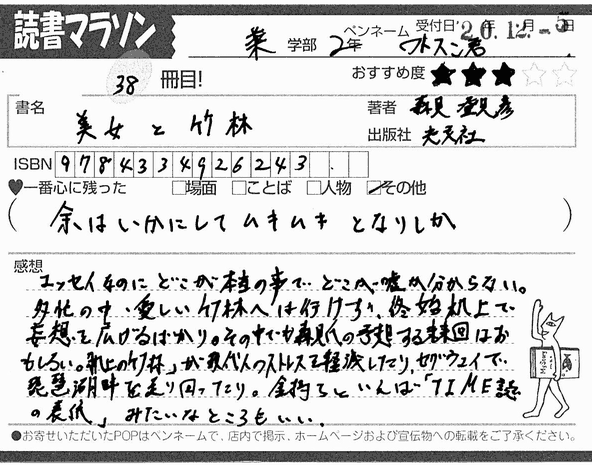 読書マラソン
薬 学部 2年 ペンネーム ワトスン君 受付日 '20年12月-5日
38 冊目! おすすめ度 ★★★☆☆
書名 美女と竹林
著者 森見登美彦
出版社 光文社
ISBN 9784334926243
♥一番心に残った □場面 □ことば □人物 ☑その他
(余はいかにしてムキムキとなりしか)
感想
エッセイなのにどこが本当の事でどこが嘘か分からない。
多忙の中、愛しい竹林へは行けず、終始机上で
妄想を広げるばかり。その中でも森見氏の予想する未来図はお
もしろい。「机上の竹林」が現代人のストレスを軽減したり、セグウェイで
琵琶湖畔を走り回ったり。金持ちといえば「TIME誌
の表紙」みたいなところもいい。
●お寄せいただいたPOPはペンネームで、店内で掲示、ホームページおよび宣伝物への転載をご了承ください。